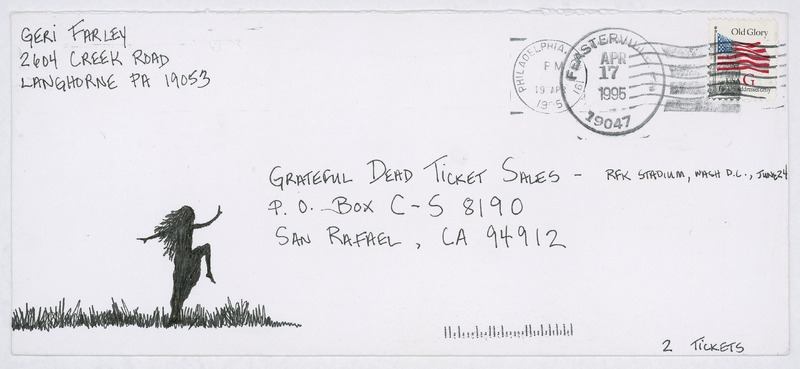 Geri Farley
2604 Creek Road
Langhorne PA 19053
PHILADELPHIA,
PM
19 APR
1995
FEASTERVILLE
APR
17
1995
19047
Old Glory
USA G
For U.S. addresses only
Grateful Dead Ticket Sales - RFK Stadium, Wash D.C., June 24
P.O. Box C-S 8190
San Rafael, CA 94912
2 Tickets